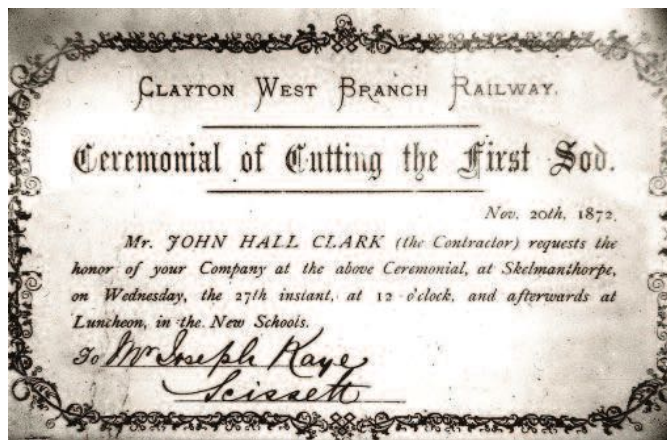 CLAYTON WEST BRANCH RAILWAY.
Ceremonial of Cutting the First Sod.
Nov. 20th, 1872.
Mr. JOHN HALL CLARK (the Contractor) requests the
honor of your Company at the above Ceremonial, at Skelmanthorpe,
on Wednesday, the 27th instant, at 12 o'clock, and afterwards at
Luncheon, in the New Schools.
To Mr Joseph Kaye
Scissett